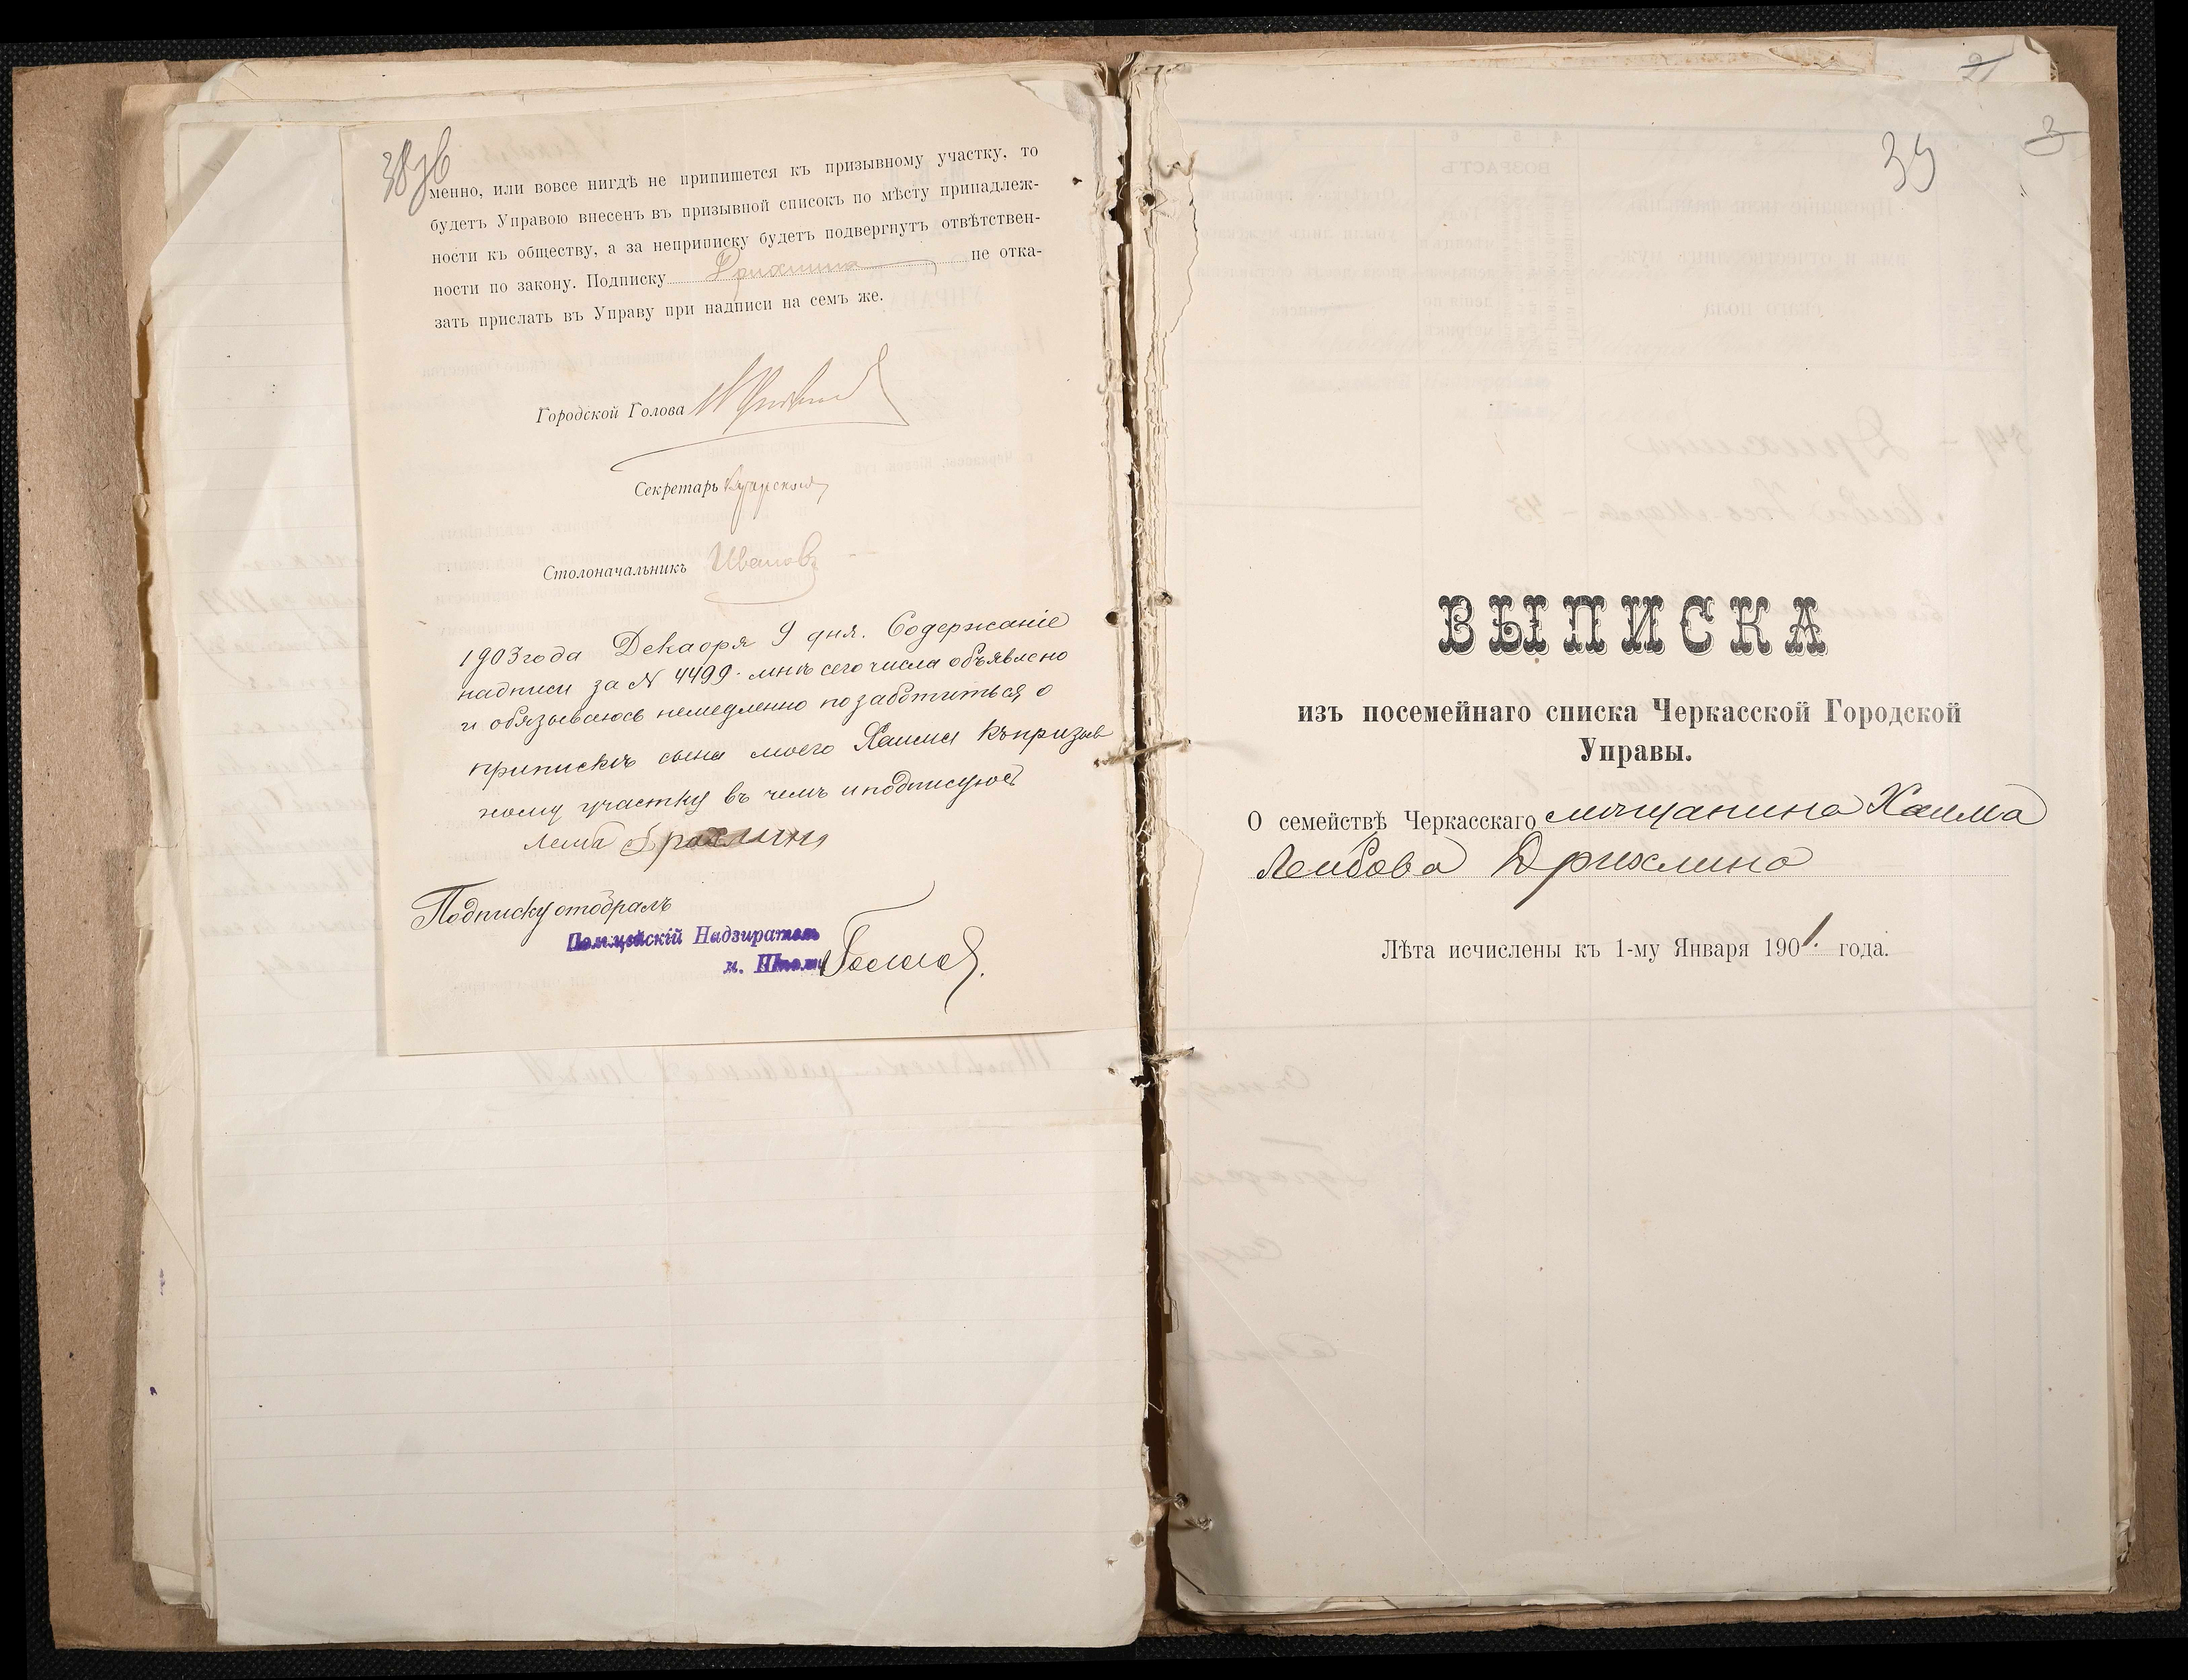 38 об
менно, или вовсе нигдѣ не припишется къ призывному участку, то
будетъ Управою внесенъ въ призывной списокъ по мѣсту принадлеж-
ности къ обществу, а за неприписку будетъ подвергнутъ отвѣтствен-
ности по закону. Подписку Дрихлина не отка-
зать прислать въ Управу при надписи на семъ же.
Городской Голова
Секретарь
Столоначальникъ Ивановъ
1903 года Декабря 9 дня. Содержаніе
надписи за № 4499. мнѣ сего числа объявлено
и обязываюсь немедленно позаботиться о
припискѣ сына моего Хаима къ призыв
ному участку въ чемъ и подписуюсь
Лейба Драхлинъ
Подписку отобралъ
Полицейскій Надзиратель
м. Шполы
21
3
39
ВЫПИСКА
изъ посемейнаго списка Черкасской Городской
Управы.
О семействѣ Черкасскаго мѣщанина Хаима
Лейбова Дрихлина
Лѣта исчислены къ 1-му Января 1901. года.